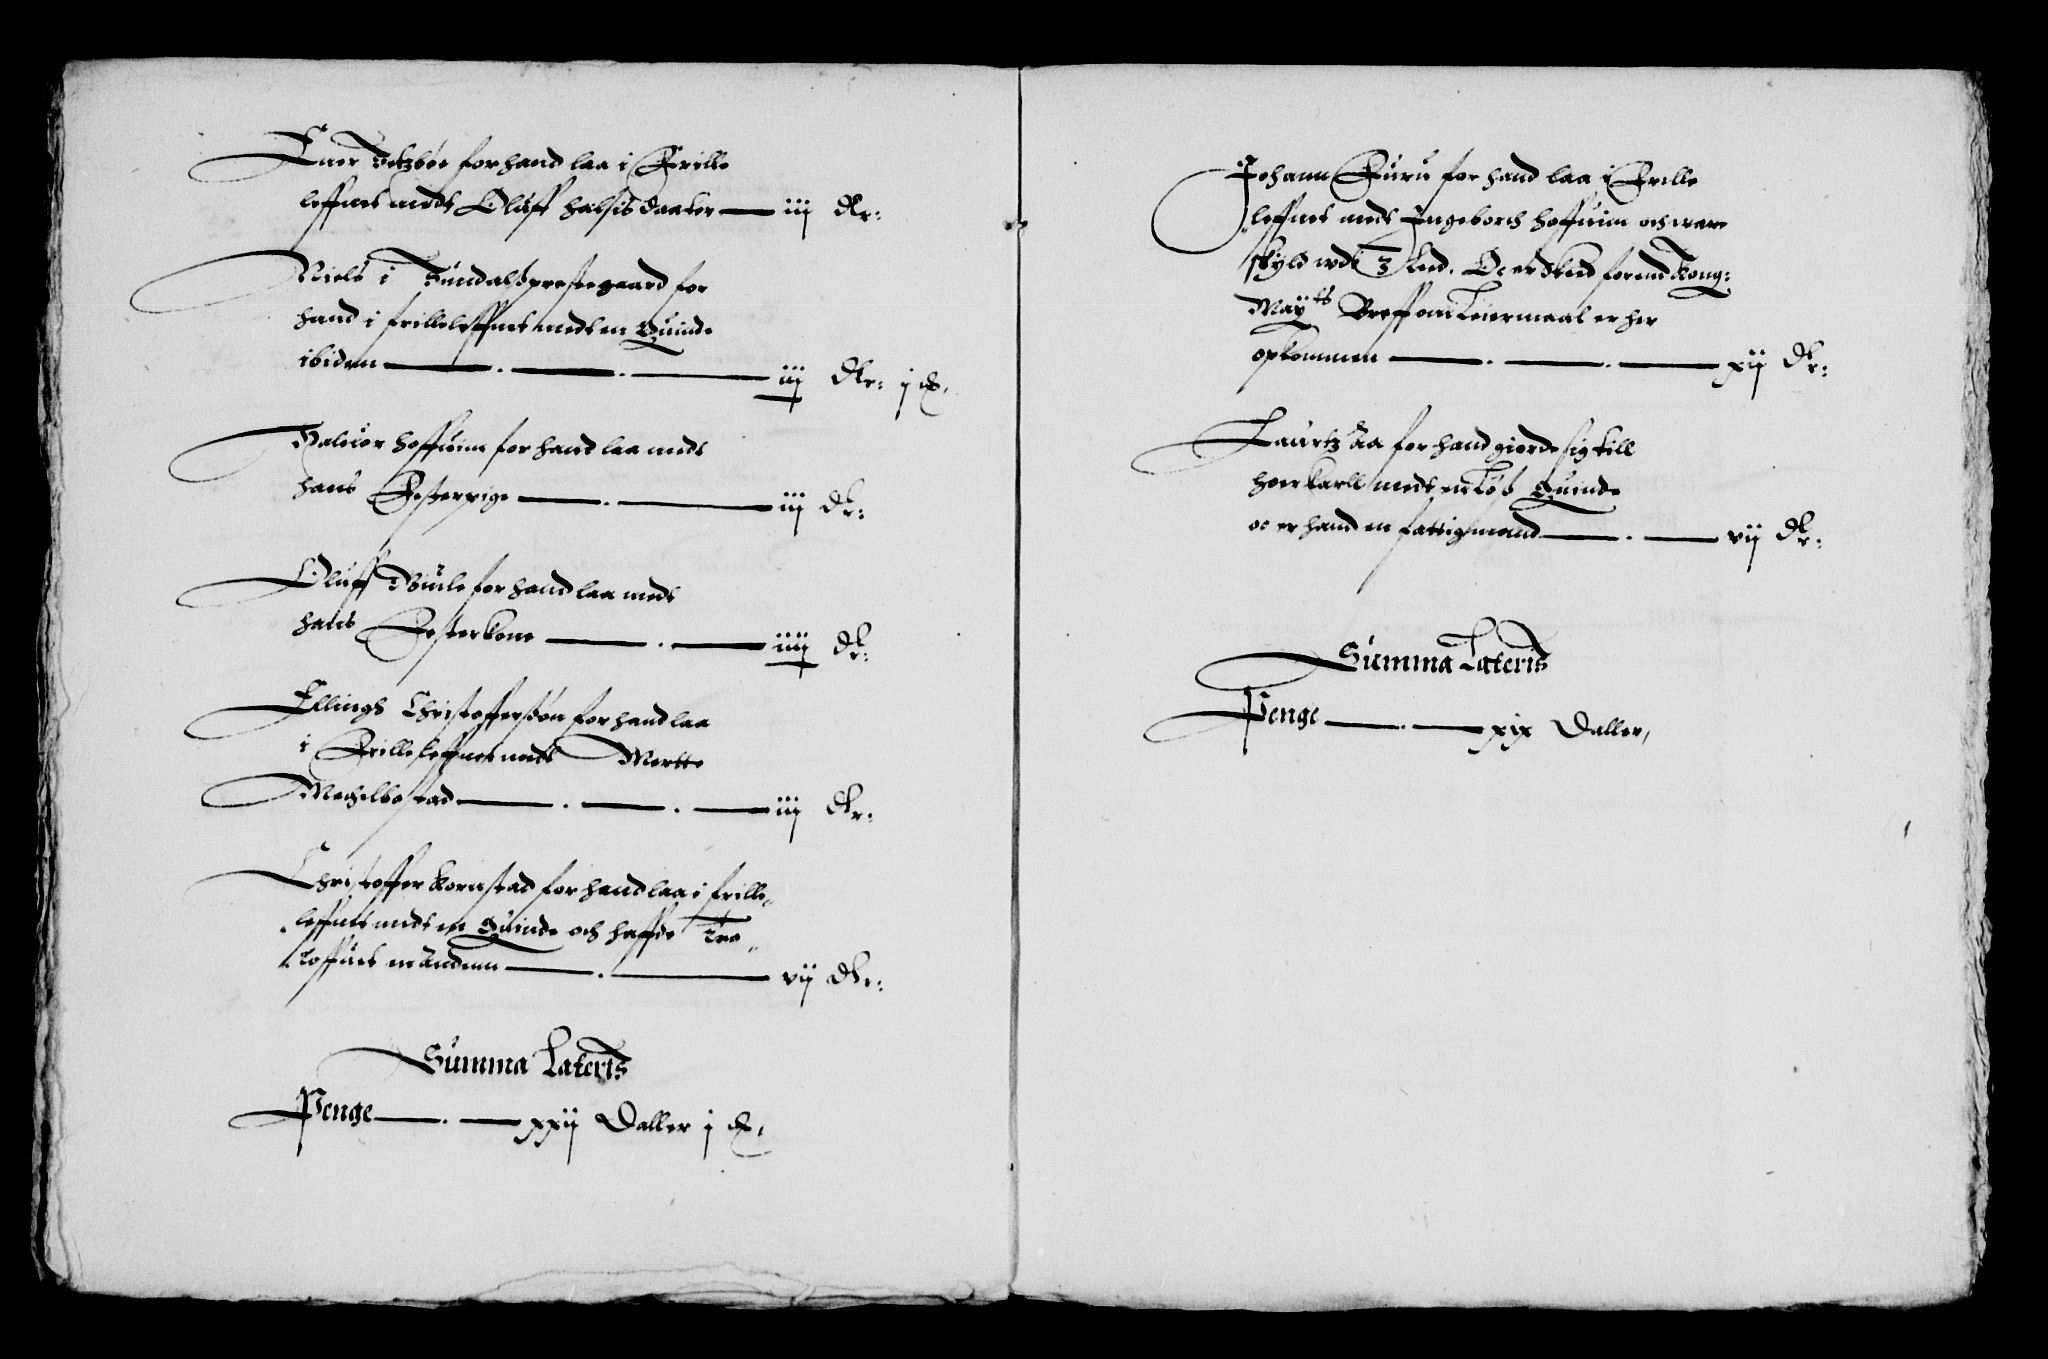 Iuer Setzböe for hand laa i Frille
leffnet meds Oluff Halsis daater — iij Dlr:
Niels i Sundals prestegaard for
hand i frilleleffnet meds en Quinde
ibidem — . — . — iij Dlr: j ß.
Haluor Hoffuim for hand laa meds
hans Festerpige — . — iij Dlr:
Oluff Biule for hand laa meds
hans Festerkone — . — iiij Dlr:
Ellingh Christoffersßön for hand laa
i Frilleleffnet meds Merthe
Meghelbostad — . — . — iij Dlr:
Christoffer Kornstad for hand laa i frille„
leffnet meds en Quinde och haffde Tro„
loffuet en anden — . — vij Dlr:
Summa Lateris
Penge — . — xxij Daller j ß,
Johann Furu for hand laa i Frille
leffnet meds Ingeborch Hoffuim och ware
skyld wdi 3 Led. Oc er skeed førend Kong:
Maÿts Breff om Leiermaal er her
opkommen — . — . — xij Dlr:
Laurtz Aa for hand giorde sig till
hoerkarll meds en Løs Quinde
oc er hand en fattig mand — . — vij Dlr:
Summa Lateris
Penge — . — xix Daller,